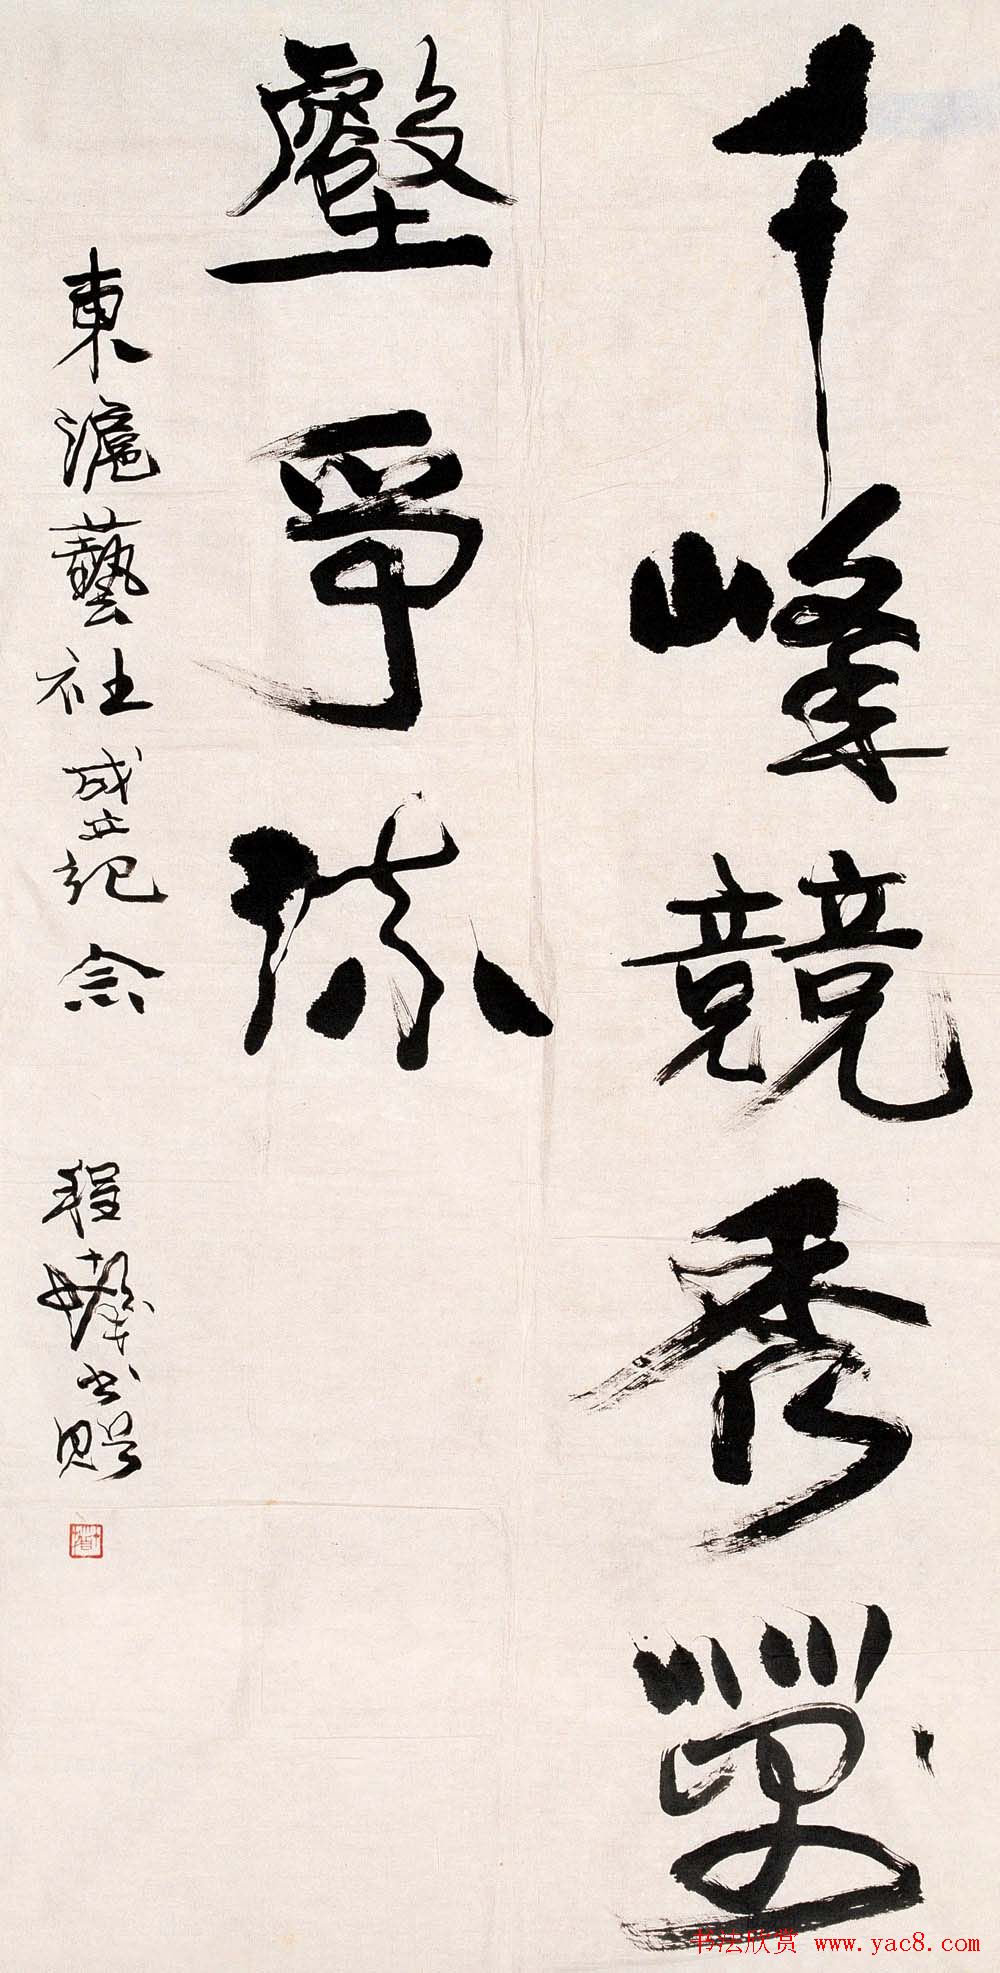 千峰競秀萬
壑爭流
東滬藝社成立紀念 程十髮書
书法欣赏 www.yac8.com